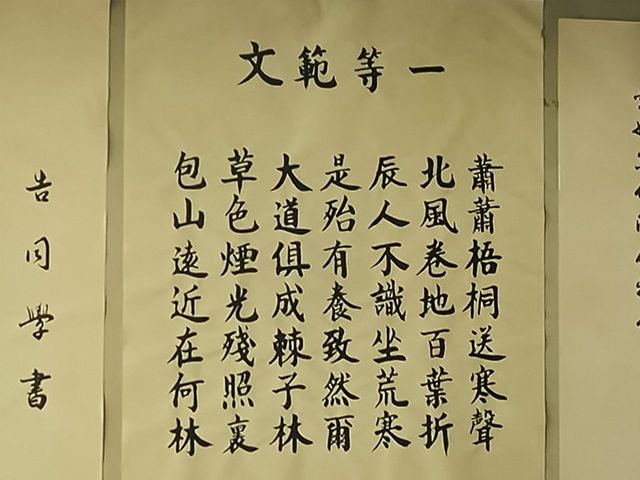 一等範文
蕭蕭梧桐送寒聲
北風卷地百葉折
辰人不識坐荒寒
是殆有養致然爾
大道俱成棘子林
草色煙光殘照裏
包山遠近在何林
告同學書